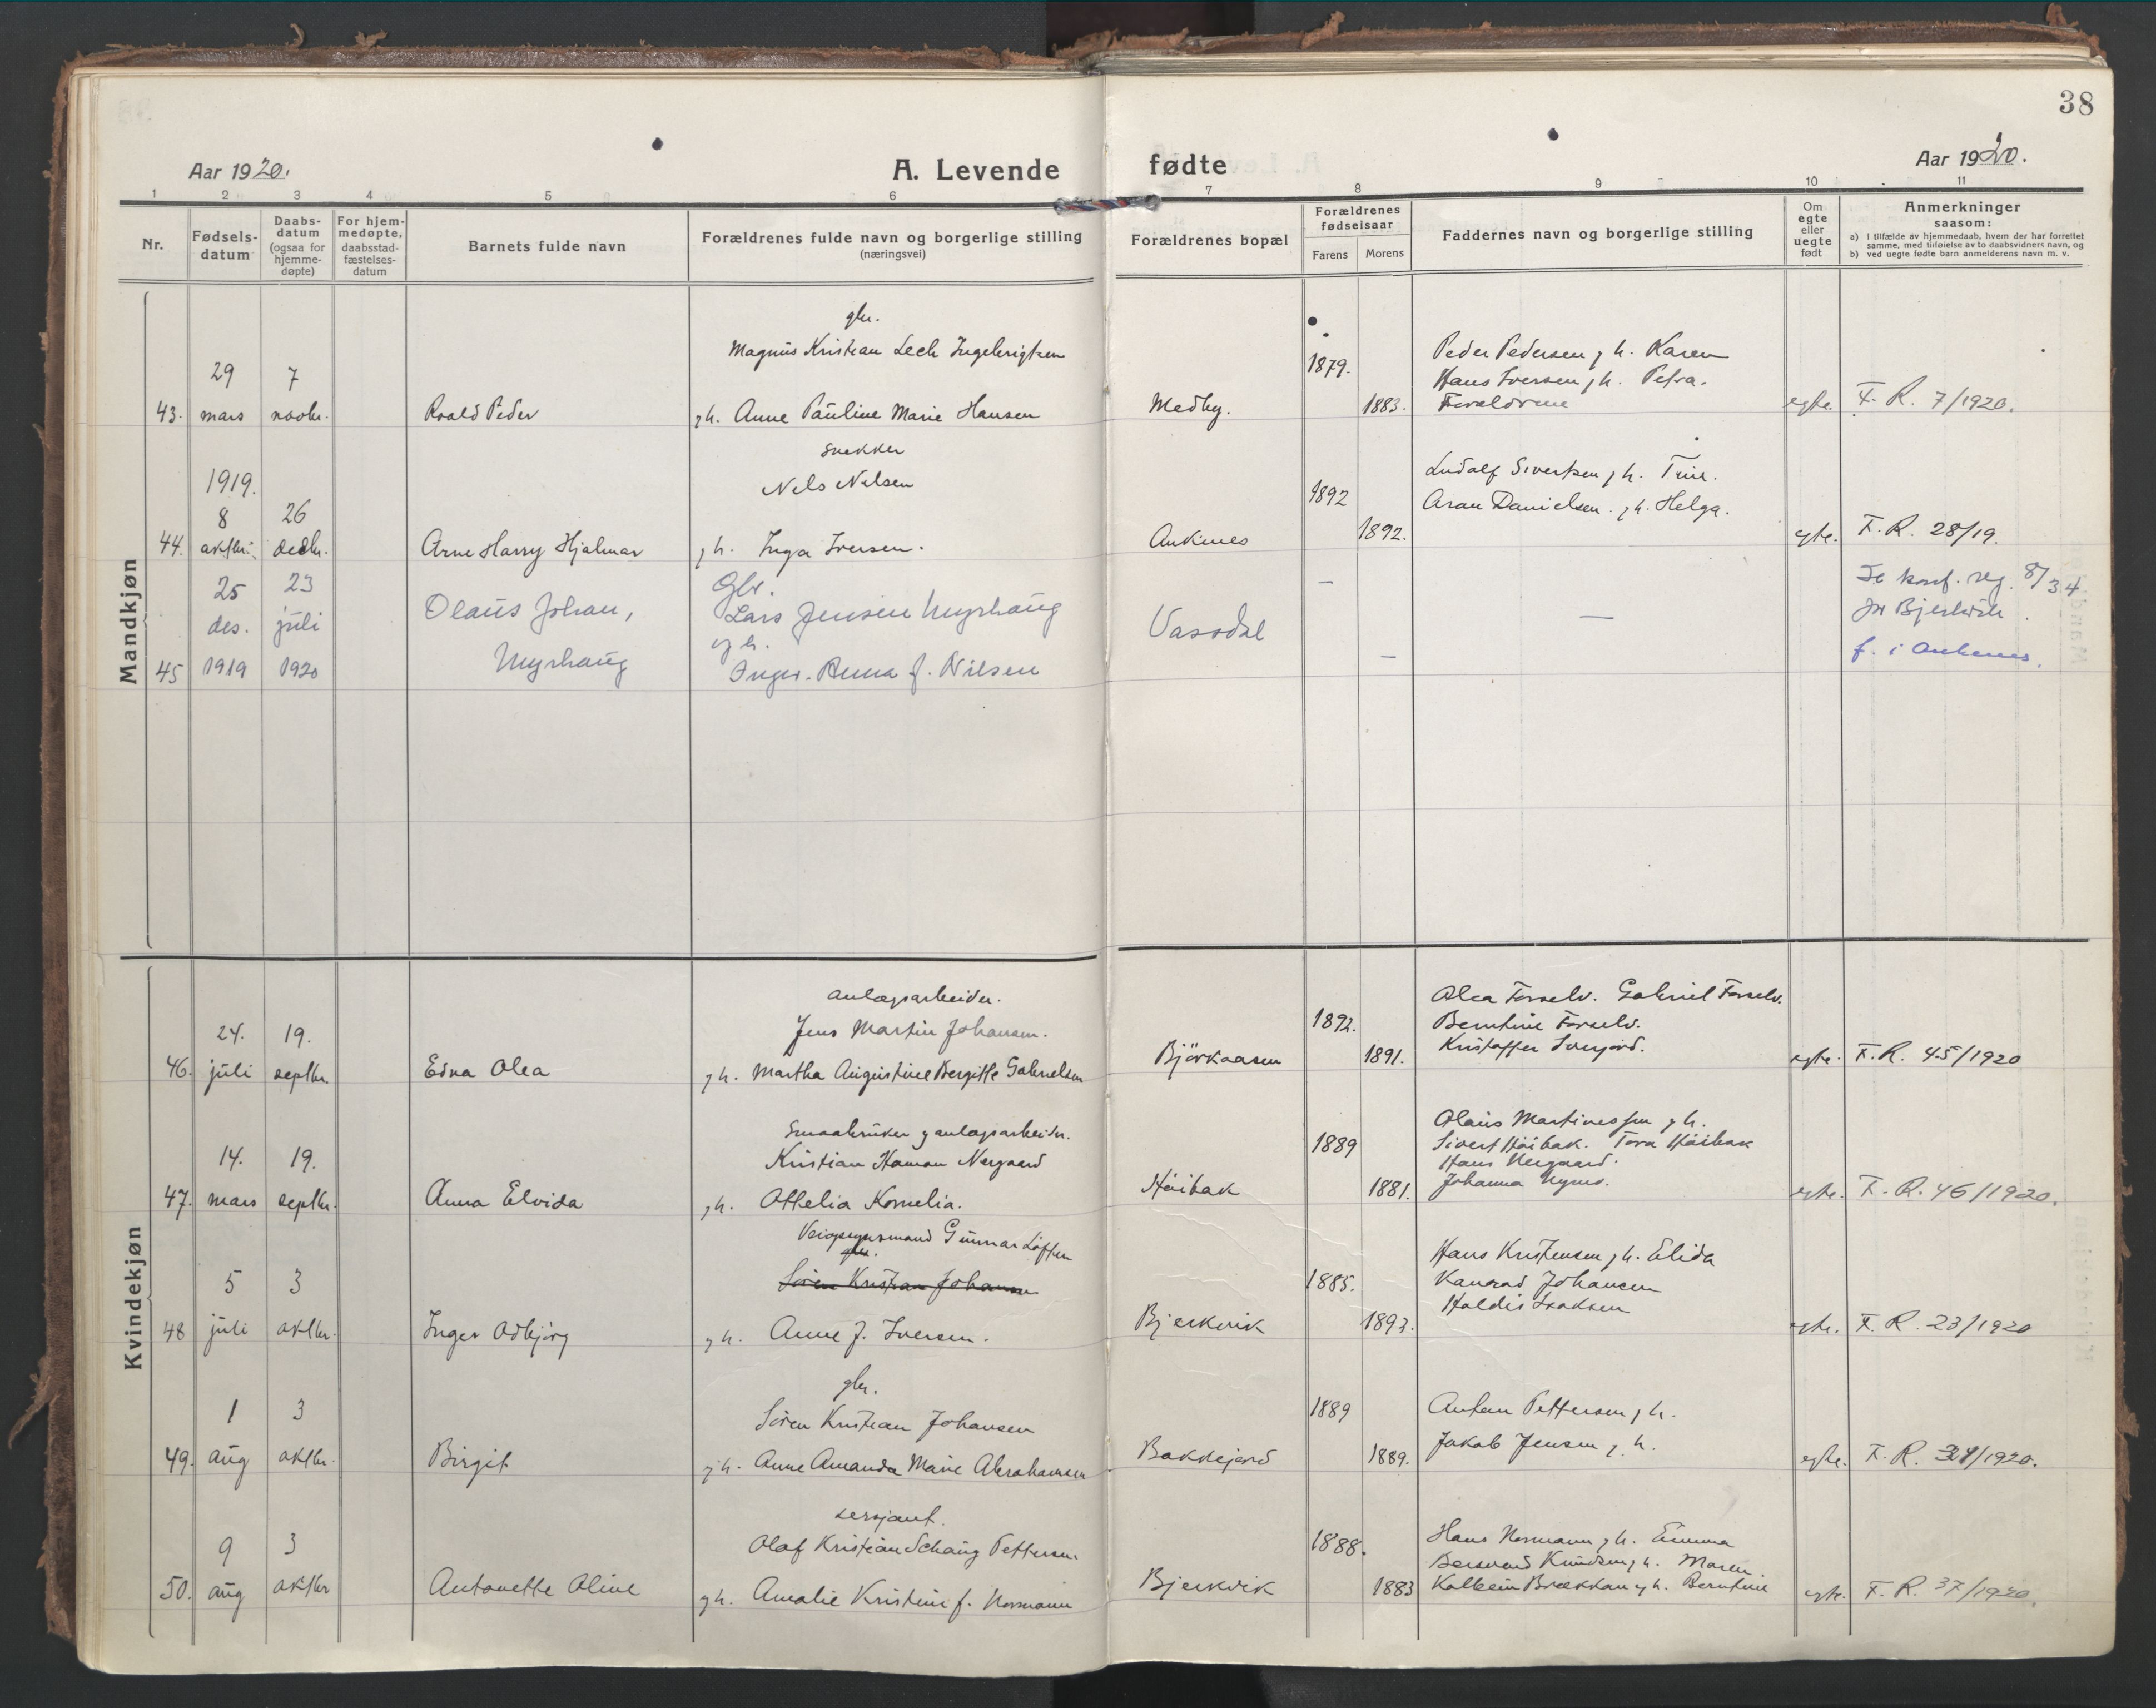 38
Aar 1920.
A. Levende fødte
Aar 1920.
1 2 3 4 5 6 7 8 9 10 11
Nr.
Fødsels-
datum
Daabs-
datum
(ogsaa for
hjemme-
døpte)
For hjem-
medøpte,
daabsstad-
fæstelses-
datum
Barnets fulde navn
Forældrenes fulde navn og borgerlige stilling
(næringsvei)
Forældrenes bopæl
Forældrenes
fødselsaar
Farens Morens
Faddernes navn og borgerlige stilling
Om
egte
eller
uegte
født
Anmerkninger
saasom:
a) i tilfælde av hjemmedaab, hvem der har forrettet
samme, med tilføielse av to daabsvidners navn, og
b) ved uegte fødte barn anmelderens navn m. v.
Mandkjøn
43. 29 mars
7 novbr.
Roald Peder
gbr.
Magnus Kristian Lech Ingebrigtsen
g h. Anne Pauline Marie Hansen
Medby.
1879.
1883.
Peder Pedersen g h. Karen
Hans Iversen g h. Petra.
Forældrene
egte.
F. R. 7/1920.
44. 1919.
8 oktbr.
26 decbr.
Arne Harry Hjalmar
snekker
Nils Nilsen
g h. Inga Iversen.
Ankenes
1892
1892.
Ludolf Sivertsen g h. Trine.
Aron Danielsen. g h. Helga.
egte.
F. R. 28/19.
45 25 des. 1919
23 juli 1920
Olaus Johan,
Myrhaug
Gbr.
Lars Jensen Myrhaug
og h.
Inger. Anna f. Nilsen
Vassdal
—
—
—
Se konf. reg. 8/34
for Bjerkvik.
f. i Ankenes.
Kvindekjøn
46. 24. juli
19. septbr.
Edna Olea
anlægsarbeider.
Jens Martin Johansen.
g h. Martha Augustine Bergitte Gabrielsen
Björkaasen
1892.
1891.
Olea Forselv. Gabriel Forselv.
Berntine Forselv.
Kristoffer
egte.
F. R. 45/1920
47. 14. mars
19. septbr.
Anna Elvida
Smaabruker g anlægsarbeider.
Kristian Haman Nergaard
g h. Othelia Kornelia.
Høibak
1889
1881.
Olaus Martinessen g h.
Sivert Høibak. Tora Høibak
Hans Nergaard.
Johanna
egte.
F. R. 46/1920.
48 5 juli
3 oktbr.
Inger Odbjörg
Veiopsynsmand Gunnar Løften
gbr.
Sören Kristian Johansen
g h. Anne J. Iversen.
Bjerkvik
1885.
1893.
Hans Kristensen g h. Elida
Konrad Johansen
Haldis Isaksen
egte.
F. R. 23/1920
49. 1 aug
3 oktbr.
Birgit
gbr.
Sören Kristian Johansen
g h. Anne Amanda Marie Abrahamsen
Bakkejord
1889
1889.
Anton Pettersen g h.
Jakob Jensen g. h.
egte.
F. R. /1920.
50. 9 aug
3 oktbr
Antonette Oline
sersjant.
Olaf Kristian Schaug Pettersen.
g h. Amalie Kristine f. Normann
Bjerkvik
1888.
1883
Hans Normann g h. Emma
Bersvend Knudsen g h. Maren
Kolbein Brækkan g h. Berntine
egte.
F. R. 37/1920.